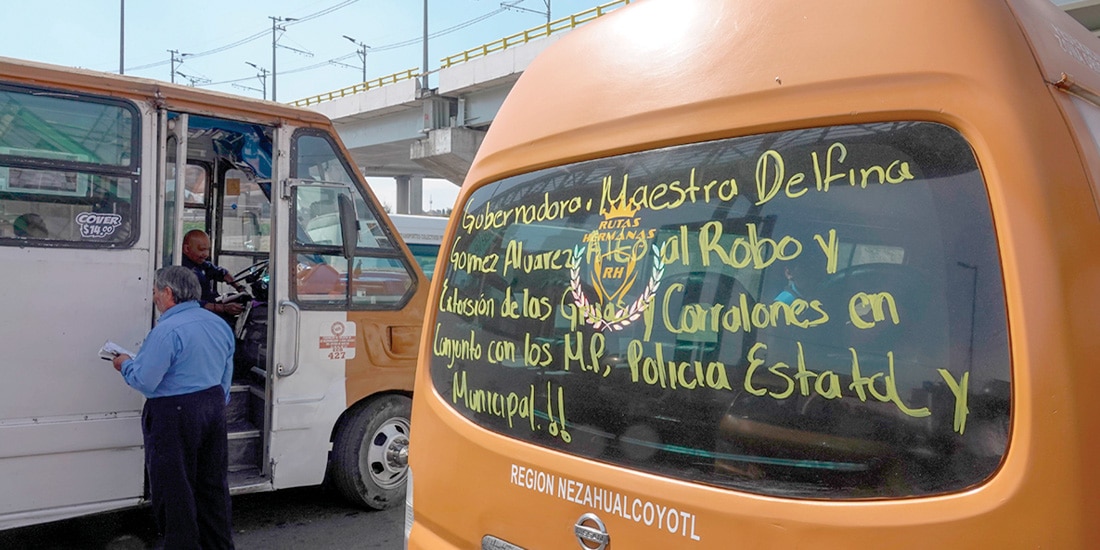 Gobernadora. Maestra Delfina
Gomez Alvarez Alto al Robo y
Extorsión de las Gruas y Corralones en
Conjunto con los M.P, Policia Estatal y
Municipal.!!
RUTAS
HERMANAS
RH
REGION NEZAHUALCOYOTL
NISSAN
COVER
$14.00
427